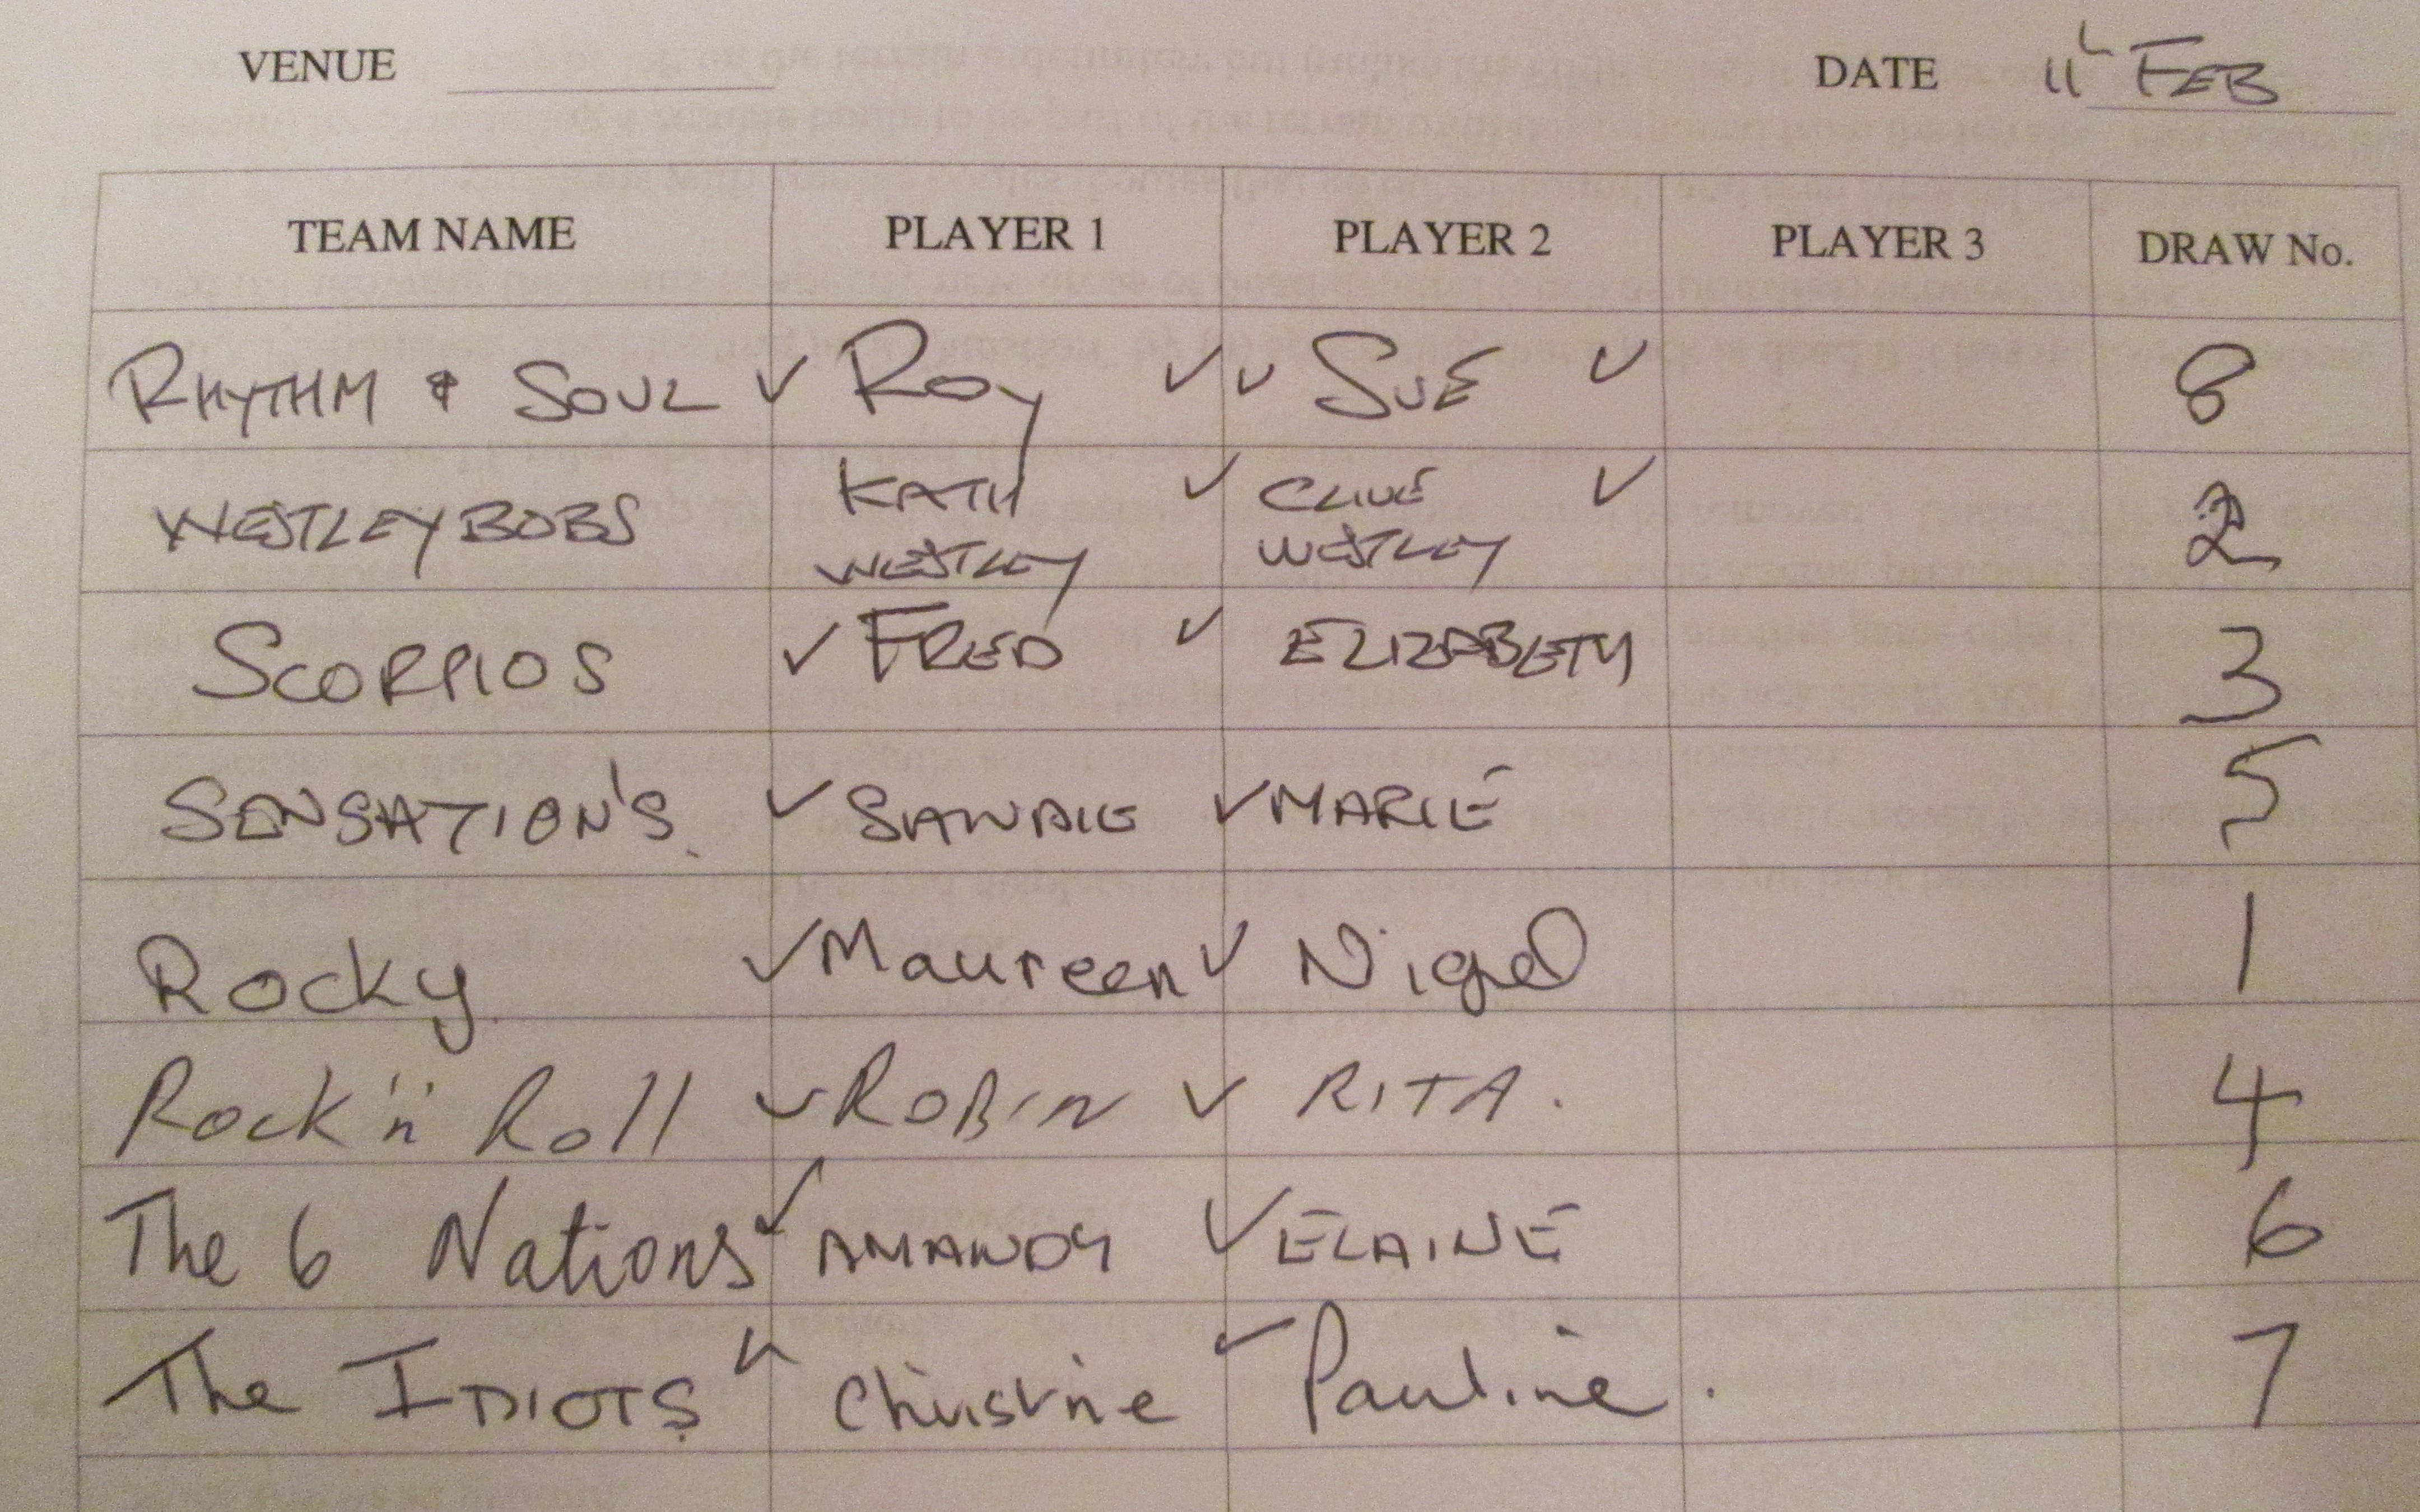 VENUE DATE 11th FEB
TEAM NAME PLAYER 1 PLAYER 2 PLAYER 3 DRAW No.
RHYTHM & SOUL ✓ ROY ✓ ✓ SUE ✓ 8
WESTLEYBOBS KATH WESTLEY ✓ CLIVE WESTLEY ✓ 2
SCORPIOS ✓ FRED ✓ ELIZABETH 3
SENSATION'S. ✓ SANDIE ✓ MARIE 5
Rocky ✓ Maureen ✓ Nigel 1
Rock 'n' Roll ✓ ROBIN ✓ RITA. 4
The 6 Nations ✓ AMANDA ✓ ELAINE 6
The IDIOTS ✓ Christine ✓ Pauline. 7